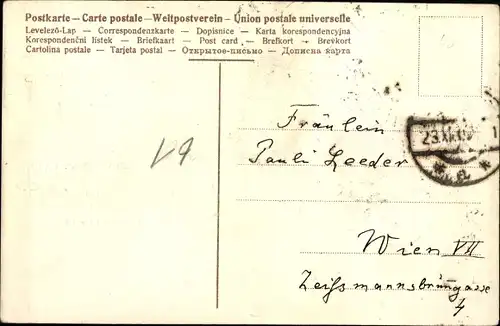 Postkarte — Carte postale — Weltpostverein — Union postale universelle
Levelező-Lap — Correspondenzkarte — Dopisnice — Karta korespondencyjna
Korespondenční lístek — Briefkaart — Post card — Brefkort — Brevkort
Cartolina postale — Tarjeta postal — Открытое-письмо — Дописна карта
V9
Fräulein
Pauli Leeder
Wien VII
Zeißmannsbrunngasse
4